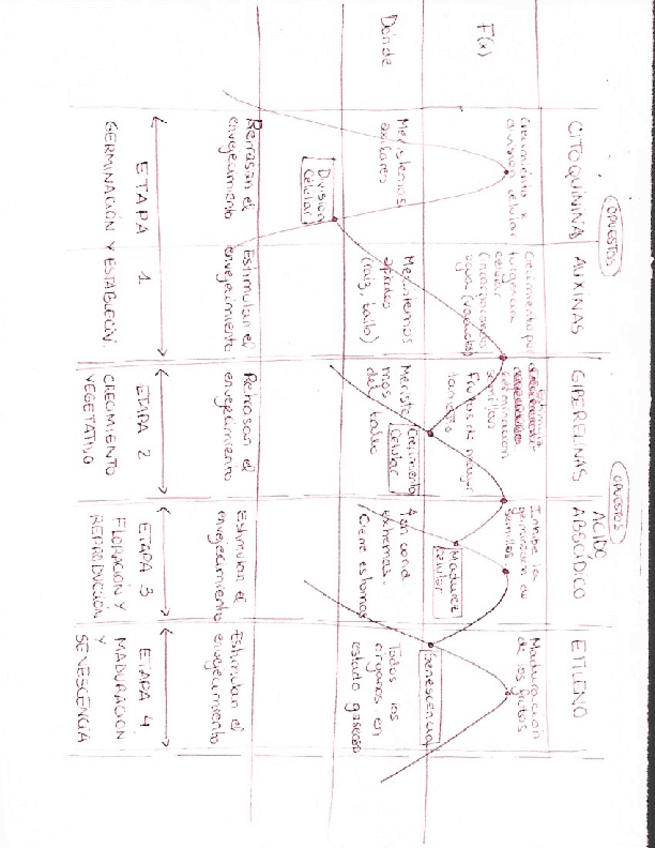 OPUESTOS
OPUESTOS
CITOQUININAS
AUXINAS
GIBERELINAS
ÁCIDO
ABSCÍDICO
ETILENO
F(x)
Crecimiento x
división celular
Crecimiento por
turgencia
celular
(incorporando
agua (vacuolas)
germinación
semillas
Frutos de mayor
tamaño
Inhibe la
germinación de
semillas
Maduración
de los frutos
Dónde
Meristemos
axilares
Meristemos
apicales
(raíz, tallo)
Meriste
mos
del tallo
cond
extremas.
Cierre estomas
Todos los
órganos en
estado gaseoso
División
Celular
Crecimiento
Celular
Madurez
celular
Senescencia
Retrasan el
envejecimiento
Estimulan el
envejecimiento
Retrasan el
envejecimiento
Estimulan el
envejecimiento
Estimulan el
envejecimiento
ETAPA 1
GERMINACIÓN Y ESTABLECIM.
ETAPA 2
CRECIMIENTO
VEGETATIVO
ETAPA 3
FLORACIÓN Y
REPRODUCCIÓN
ETAPA 4
MADURACIÓN
Y
SENESCENCIA